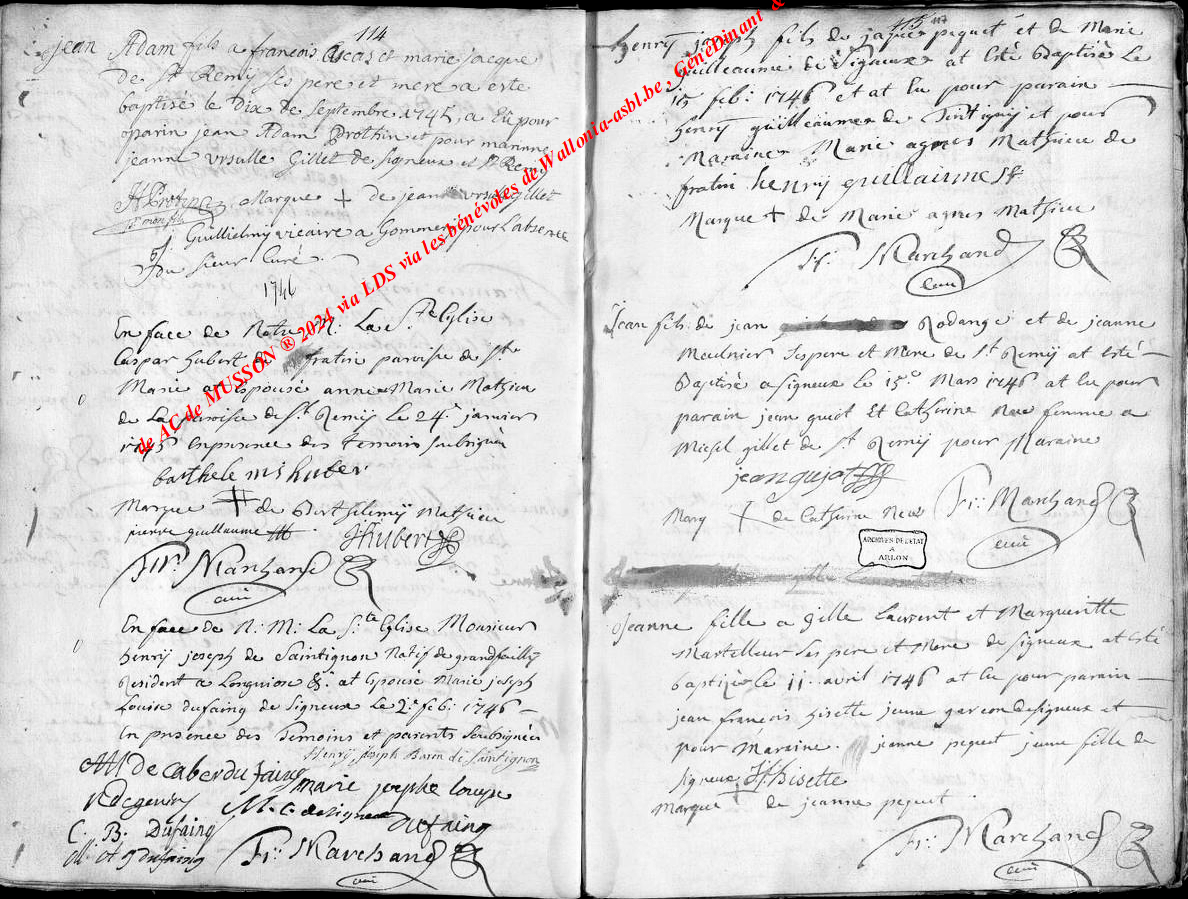 114
jean Adam fils a francois Lecas et marie jacque
de St Remy ses pere et mere a este
baptisé le Dix de septembre 1745, a Eu pour
parin jean Adam Prothin et pour maranne
jeanne ursulle Gillet de Signeux et St Remy
Marque + de jeanne ursule gillet
J. Guillielmy vicaire a Gommery pour L'absence
Du sieur Curé.
1746
En face de Notre M: La Ste Eglise
Caspar hubert de fratin paroise de Ste
Marie at Epousé anne Marie Mathieu
de La paroise de St Remy Le 24e janvier
Enpresence des temoins soubsignés
barthelemi huber
Marque + de Barthelemij Mathieu
pierre guillaume
JHubert
Fr: Marchand
curé
En face de N: M: La Ste Eglise Monsieur
henrij joseph de Saintignon Natif de grandfailly
Resident a Longuion &c. at Epousé Marie joseph
Louise dufaing de Signeux Le 2e feb: 1746
En presence des Temoins et parents soubsignés
Henry Joseph Baron de Saintignon
marie josephe louise
dufaing
C. B. Dufaing
Fr: Marchand
curé
de AC de MUSSON ® 2021 via LDS via les bénévoles de Wallonia-asbl.be , GénéDinant &
117
henrij joseph fils de piquet et de Marie
guilleaume de Signeux at Esté Baptisé Le
15 feb: 1746 et at Eu pour parain
henrij guilleaume de Tintignij et pour
Maraine Marie agnes Mathieu de
fratin henrij guillaume
Marque + de Marie agnes Mathieu
Fr: Marchand
curé
Jean fils de jean Rodange et de jeanne
Meulnier ses pere et Mere de St Remij at Esté
Baptisé a signeux le 15e Mars 1746 at Eu pour
parain jean guiot Et Catherine femme a
Michel gillet de St Remij pour Maraine
jean gujot
Marq + de Catherine
Fr: Marchand
curé
ARCHIVES DE L'ETAT
A
ARLON
Jeanne fille a gille Laurent et Margueritte
Martelleur ses pere et Mere de signeux at Esté
baptizé le 11 avril 1746 at Eu pour parain
jean françois hisette jeune garcon de signeux et
pour Maraine jeanne piquet jeune fille de
signeux JF. hisette
Marque + de jeanne piquet
Fr: Marchand
curé